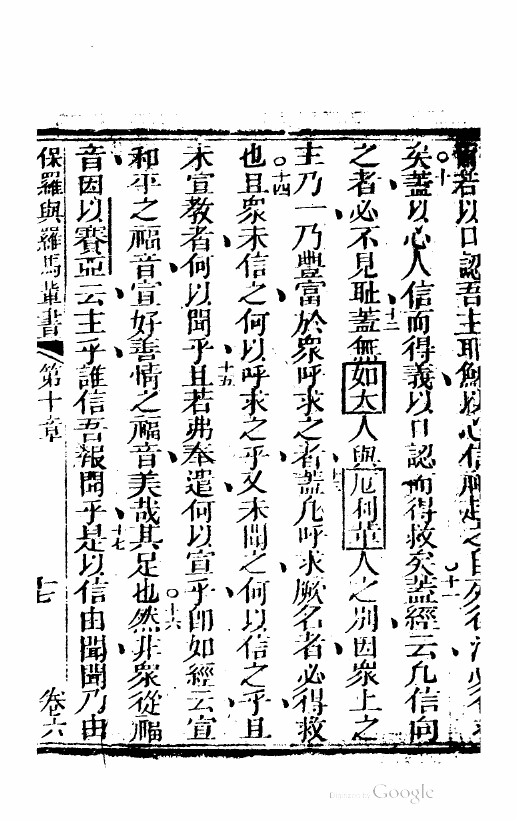 若以口認吾主耶穌以心信神起之自死得
矣蓋以心人信而得義以口認而得救矣蓋經云凡信向
之者必不見恥蓋無如大人與厄利革人之別因衆上之
主乃一乃豐富於衆呼求之者蓋凡呼求厥名者必得救
也且衆未信之何以呼求之乎又未聞之何以信之乎且
未宣教者何以聞乎且若弗奉遣何以宣乎即如經云宣
和平之福音宣好善情之福音美哉其足也然非衆從福
音因以賽亞云主乎誰信吾報聞乎是以信由聞聞乃由
保羅與羅馬輩書 第十章 十七 卷六
十 十一
十二
十三
十四
十五
十六
十七
Digitized by Google